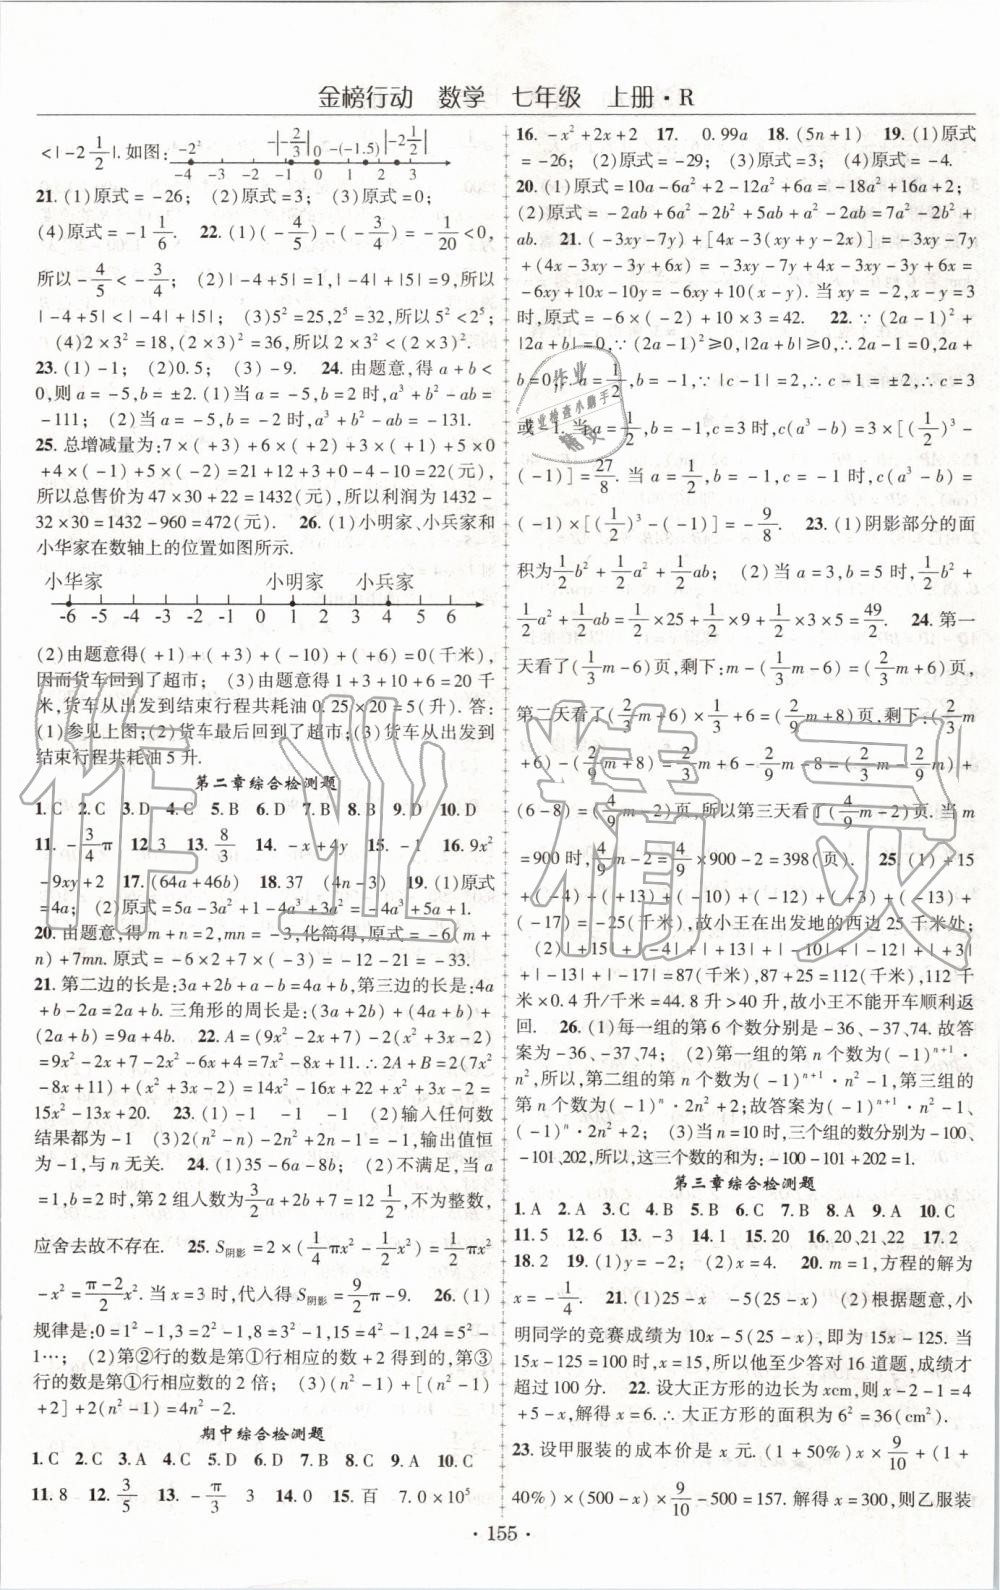 金榜行动 数学 七年级 上册·R
<|-2 1/2|.如图: -2² -|-2/3| 0 -(-1.5) |-2 1/2|
-4 -3 -2 -1 0 1 2 3
21. (1)原式=-26; (2)原式=3; (3)原式=0;
(4)原式=-1 1/6. 22. (1)(-4/5)-(-3/4)=-1/20<0,
所以-4/5<-3/4; (2)|-4+5|=1,|-4|+|5|=9,所以
|-4+5|<|-4|+|5|; (3)5²=25,2⁵=32,所以5²<2⁵;
(4)2×3²=18,(2×3)²=36,所以2×3²<(2×3)².
23. (1)-1; (2)0.5; (3)-9. 24. 由题意,得a+b<
0,则a=-5,b=±2. (1)当a=-5,b=2时,a³+b²-ab=
-111; (2)当a=-5,b=-2时,a³+b²-ab=-131.
25. 总增减量为:7×(+3)+6×(+2)+3×(+1)+5×0
+4×(-1)+5×(-2)=21+12+3+0-4-10=22(元),
所以总售价为47×30+22=1432(元),所以利润为1432-
32×30=1432-960=472(元). 26. (1)小明家、小兵家和
小华家在数轴上的位置如图所示.
小华家 小明家 小兵家
-6 -5 -4 -3 -2 -1 0 1 2 3 4 5 6
(2)由题意得(+1)+(+3)+(-10)+(+6)=0(千米),
因而货车回到了超市; (3)由题意得1+3+10+6=20千
米,货车从出发到结束行程共耗油0.25×20=5(升). 答:
(1)参见上图;(2)货车最后回到了超市;(3)货车从出发到
结束行程共耗油5升.
第二章综合检测题
1. C 2. C 3. D 4. C 5. B 6. D 7. B 8. B 9. D 10. D
11. -3/4π 12. 3 13. 8/3 14. -x+4y 15. -1 16. 9x²
-9xy+2 17. (64a+46b) 18. 37 (4n-3) 19. (1)原式
=4a; (2)原式=5a-3a²+1-4a³+3a²=-4a³+5a+1.
20. 由题意,得m+n=2,mn=-3,化简得,原式=-6(m+
n)+7mn. 原式=-6×2+7×(-3)=-12-21=-33.
21. 第二边的长是:3a+2b+a-b=4a+b,第三边的长是:4a
+b-2a=2a+b. 三角形的周长是:(3a+2b)+(4a+b)+
(2a+b)=9a+4b. 22. A=(9x²-2x+7)-2(x²+3x-2)
=9x²-2x+7-2x²-6x+4=7x²-8x+11. ∴2A+B=2(7x²
-8x+11)+(x²+3x-2)=14x²-16x+22+x²+3x-2=
15x²-13x+20. 23. (1)-1 -1 -1 (2)输入任何数
结果都为-1 (3)2(n²-n)-2n²+2n-1=-1,输出值恒
为-1,与n无关. 24. (1)35-6a-8b; (2)不满足,当a
=1,b=2时,第2组人数为3/2a+2b+7=12 1/2,不为整数,
应舍去故不存在. 25. S阴影=2×(1/4πx²-1/2x²)=1/2πx²
-x²=π-2/2x². 当x=3时,代入得S阴影=9/2π-9. 26. (1)
规律是:0=1²-1,3=2²-1,8=3²-1,15=4²-1,24=5²-
1…; (2)第②行的数是第①行相应的数+2得到的,第③
行的数是第①行相应数的2倍; (3)(n²-1)+[(n²-1)
+2]+2(n²-1)=4n²-2.
期中综合检测题
1. C 2. C 3. A 4. C 5. D 6. D 7. B 8. A 9. C 10. C
11. 8 12. 3/5 13. -π/3 3 14. 0 15. 百 7.0×10⁵
16. -x²+2x+2 17. 0.99a 18. (5n+1) 19. (1)原式
=-26; (2)原式=-29; (3)原式=3; (4)原式=-4.
20. (1)原式=10a-6a²+2-12a²+6a=-18a²+16a+2;
(2)原式=-2ab+6a²-2b²+5ab+a²-2ab=7a²-2b²+
ab. 21. (-3xy-7y)+[4x-3(xy+y-2x)]=-3xy-7y
+(4x-3xy-3y+6x)=-3xy-7y+4x-3xy-3y+6x=
-6xy+10x-10y=-6xy+10(x-y). 当xy=-2,x-y=3
时,原式=-6×(-2)+10×3=42. 22. ∵(2a-1)²+
|2a+b|=0,∵(2a-1)²≥0,|2a+b|≥0,∴2a-1=0,2a+
b=0,∴a=1/2,b=-1. ∵|c-1|=2,∴c-1=±2,∴c=3
或-1. 当a=1/2,b=-1,c=3时,c(a³-b)=3×[(1/2)³-
(-1)]=27/8. 当a=1/2,b=-1,c=-1时,c(a³-b)=
(-1)×[(1/2)³-(-1)]=-9/8. 23. (1)阴影部分的面
积为1/2b²+1/2a²+1/2ab; (2)当a=3,b=5时,1/2b²+
1/2a²+1/2ab=1/2×25+1/2×9+1/2×3×5=49/2. 24. 第一
天看了(1/3m-6)页,剩下:m-(1/3m-6)=(2/3m+6)页,
第二天看了(2/3m+6)×1/3+6=(2/9m+8)页,剩下:(2/3m
+6)-(2/9m+8)=2/3m+6-2/9m-8=(2/3m-2/9m)+
(6-8)=(4/9m-2)页,所以第三天看了(4/9m-2)页. 当m
=900时,4/9m-2=4/9×900-2=398(页). 25. (1)+15
+(-4)+(+13)+(-10)+(-12)+(+3)+(-13)+
(-17)=-25(千米),故小王在出发地的西边25千米处;
(2)|+15|+|-4|+|+13|+|-10|+|-12|+|+3|
+|-13|+|-17|=87(千米),87+25=112(千米),112千
米×0.4升/千米=44.8升>40升,故小王不能开车顺利返
回. 26. (1)每一组的第6个数分别是-36、-37、74. 故答
案为-36、-37、74; (2)第一组的第n个数为(-1)ⁿ⁺¹·
n²,所以,第二组的第n个数为(-1)ⁿ⁺¹·n²-1,第三组的
第n个数为(-1)ⁿ·2n²+2;故答案为(-1)ⁿ⁺¹·n²-1、
(-1)ⁿ·2n²+2; (3)当n=10时,三个组的数分别为-100、
-101、202,所以,这三个数的和为:-100-101+202=1.
第三章综合检测题
1. A 2. A 3. C 4. B 5. B 6. C 7. C 8. D 9. A 10. C
11. 5 12. 6 13. -3 14. 1 15. 20 16. 20、21、22 17. 2
18. 2 19. (1)y=-2; (2)x=4. 20. m=1,方程的解为
x=-1/4. 21. (1)25-x -5(25-x) (2)根据题意,小
明同学的竞赛成绩为10x-5(25-x),即为15x-125. 当
15x-125=100时,x=15,所以他至少答对16道题,成绩才
超过100分. 22. 设大正方形的边长为xcm,则x-2-1=4
+5-x,解得x=6. ∴大正方形的面积为6²=36(cm²).
23. 设甲服装的成本价是x元. (1+50%)x×9/10+(1+
40%)×(500-x)×9/10-500=157. 解得x=300,则乙服装
·155·
作业
业检查小助手
精灵
作业精灵